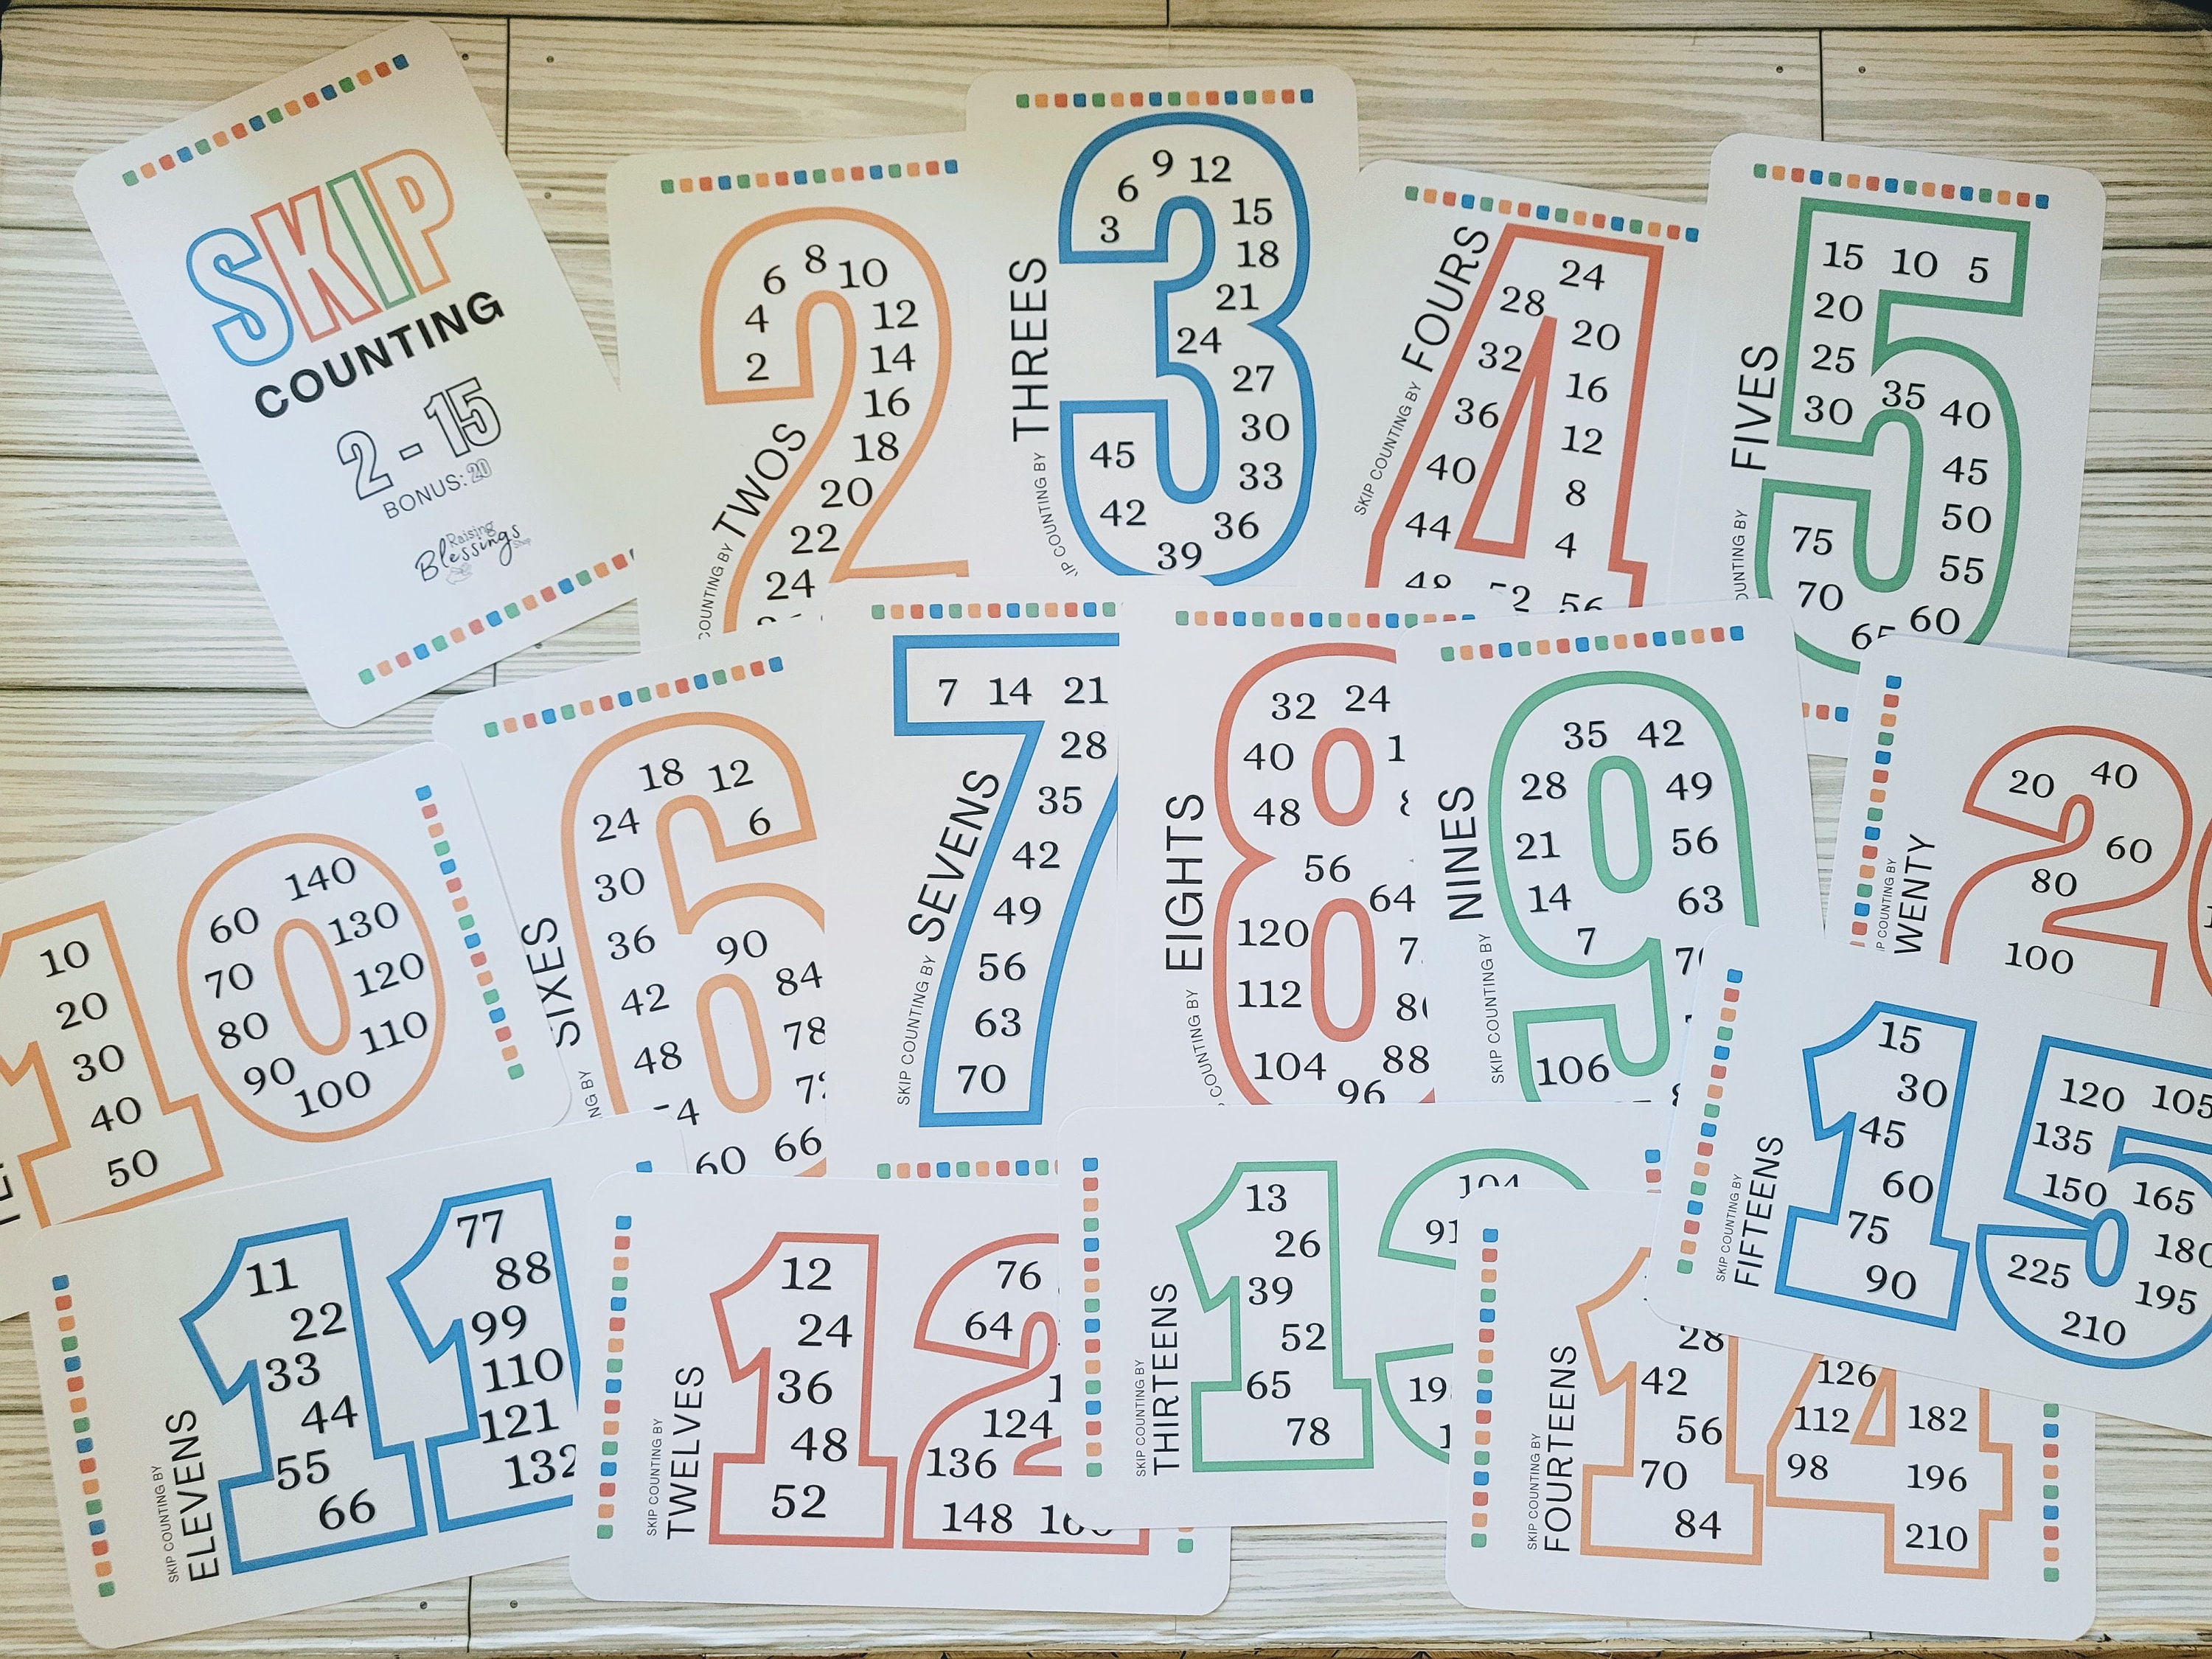 SKIP
COUNTING
2 - 15
BONUS: 20
Raising
Blessings
Shop
COUNTING BY TWOS
2
4
6
8
10
12
14
16
18
20
22
24
THREES
COUNTING BY
3
6
9
12
15
18
21
24
27
30
33
36
39
42
45
SKIP COUNTING BY FOURS
4
8
12
16
20
24
28
32
36
40
44
48
52
56
FIVES
15 10 5
20
25
30
35
40
45
50
55
60
65
70
75
10
20
30
40
50
60
70
80
90
100
110
120
130
140
SIXES
6
12
18
24
30
36
42
48
60
66
78
84
90
SKIP COUNTING BY SEVENS
7 14 21
28
35
42
49
56
63
70
COUNTING BY EIGHTS
24
32
40
48
56
64
88
96
104
112
120
SKIP COUNTING BY NINES
7
14
21
28
35
42
49
56
63
106
COUNTING BY
WENTY
20
40
60
80
100
SKIP COUNTING BY
ELEVENS
11
22
33
44
55
66
77
88
99
110
121
132
SKIP COUNTING BY
TWELVES
12
24
36
48
52
64
76
124
136
148
SKIP COUNTING BY
THIRTEENS
13
26
39
52
65
78
91
104
SKIP COUNTING BY
FOURTEENS
28
42
56
70
84
98
112
126
182
196
210
SKIP COUNTING BY
FIFTEENS
15
30
45
60
75
90
105
120
135
150
165
180
195
210
225